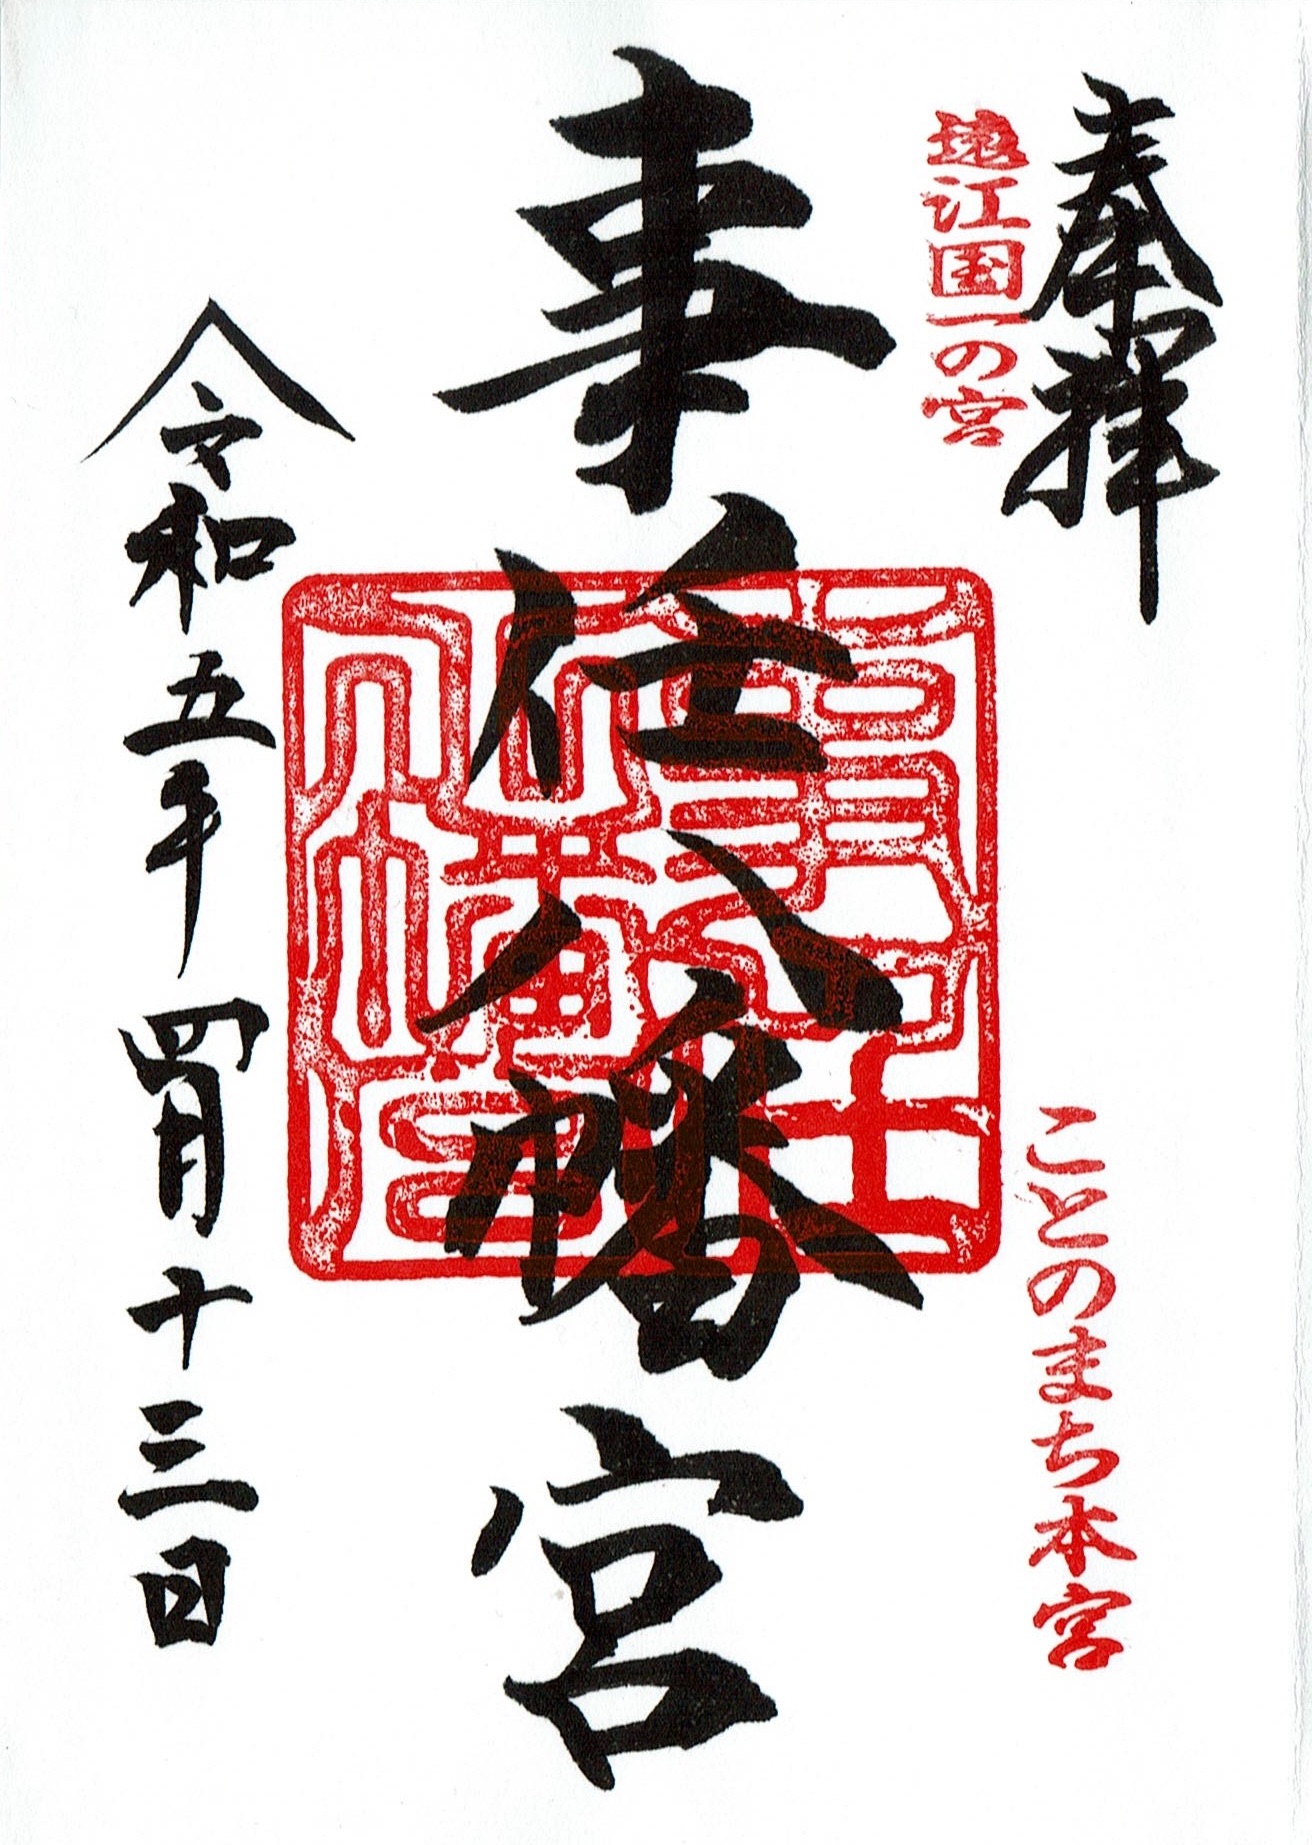 奉拝
遠江国一の宮
ことのまち本宮
事任八幡宮
令和五年四月十三日